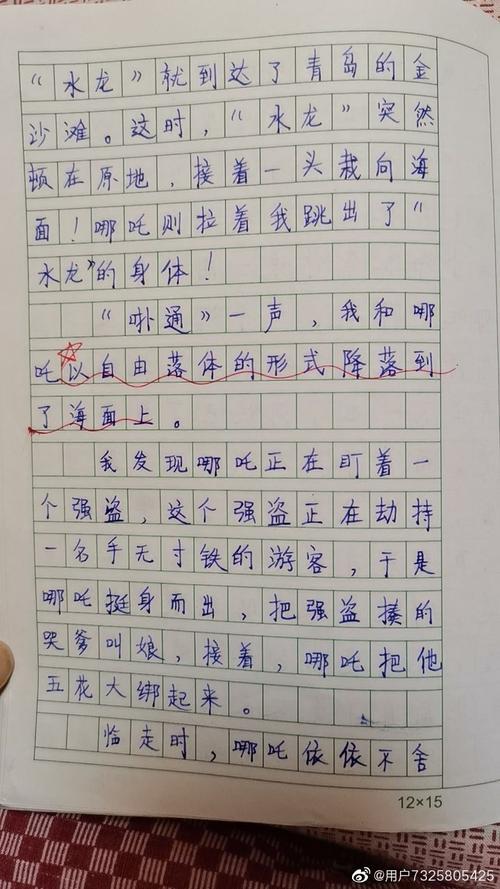 “水龙”就到达了青岛的金
沙滩。这时，“水龙”突然
顿在原地，接着一头栽向海
面！哪吒则拉着我跳出了“
水龙”的身体！
“卟通”一声，我和哪
吒以自由落体的形式降落到
了海面上。
我发现哪吒正在盯着一
个强盗，这个强盗正在劫持
一名手无寸铁的游客，于是
哪吒挺身而出，把强盗揍的
哭爹叫娘，接着，哪吒把他
五花大绑起来。
临走时，哪吒依依不舍
12×15
@用户7325805425